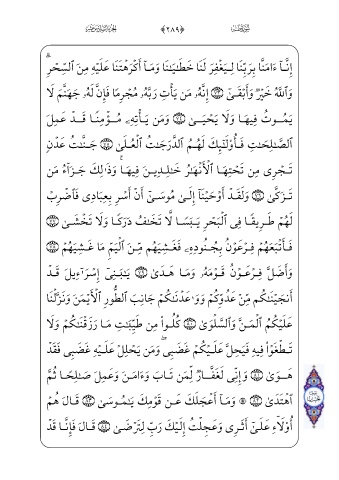 ﴿٢٨٩﴾
إِنَّآ ءَامَنَّا بِرَبِّنَا لِيَغْفِرَ لَنَا خَطَٰيَٰنَا وَمَآ أَكْرَهْتَنَا عَلَيْهِ مِنَ ٱلسِّحْرِۗ
وَٱللَّهُ خَيْرٌ وَأَبْقَىٰٓ ۝٧٣ إِنَّهُۥ مَن يَأْتِ رَبَّهُۥ مُجْرِمًا فَإِنَّ لَهُۥ جَهَنَّمَ لَا
يَمُوتُ فِيهَا وَلَا يَحْيَىٰ ۝٧٤ وَمَن يَأْتِهِۦ مُؤْمِنًا قَدْ عَمِلَ
ٱلصَّٰلِحَٰتِ فَأُو۟لَٰٓئِكَ لَهُمُ ٱلدَّرَجَٰتُ ٱلْعُلَىٰ ۝٧٥ جَنَّٰتُ عَدْنٍ
تَجْرِى مِن تَحْتِهَا ٱلْأَنْهَٰرُ خَٰلِدِينَ فِيهَاۚ وَذَٰلِكَ جَزَآءُ مَن
تَزَكَّىٰ ۝٧٦ وَلَقَدْ أَوْحَيْنَآ إِلَىٰ مُوسَىٰٓ أَنْ أَسْرِ بِعِبَادِى فَٱضْرِبْ
لَهُمْ طَرِيقًا فِى ٱلْبَحْرِ يَبَسًا لَّا تَخَٰفُ دَرَكًا وَلَا تَخْشَىٰ ۝٧٧
فَأَتْبَعَهُمْ فِرْعَوْنُ بِجُنُودِهِۦ فَغَشِيَهُم مِّنَ ٱلْيَمِّ مَا غَشِيَهُمْ ۝٧٨
وَأَضَلَّ فِرْعَوْنُ قَوْمَهُۥ وَمَا هَدَىٰ ۝٧٩ يَٰبَنِىٓ إِسْرَٰٓءِيلَ قَدْ
أَنجَيْنَٰكُم مِّنْ عَدُوِّكُمْ وَوَٰعَدْنَٰكُمْ جَانِبَ ٱلطُّورِ ٱلْأَيْمَنَ وَنَزَّلْنَا
عَلَيْكُمُ ٱلْمَنَّ وَٱلسَّلْوَىٰ ۝٨٠ كُلُوا۟ مِن طَيِّبَٰتِ مَا رَزَقْنَٰكُمْ وَلَا
تَطْغَوْا۟ فِيهِ فَيَحِلَّ عَلَيْكُمْ غَضَبِىۖ وَمَن يَحْلِلْ عَلَيْهِ غَضَبِى فَقَدْ
هَوَىٰ ۝٨١ وَإِنِّى لَغَفَّارٌ لِّمَن تَابَ وَءَامَنَ وَعَمِلَ صَٰلِحًا ثُمَّ
ٱهْتَدَىٰ ۝٨٢ ۞ وَمَآ أَعْجَلَكَ عَن قَوْمِكَ يَٰمُوسَىٰ ۝٨٣ قَالَ هُمْ
أُو۟لَآءِ عَلَىٰٓ أَثَرِى وَعَجِلْتُ إِلَيْكَ رَبِّ لِتَرْضَىٰ ۝٨٤ قَالَ فَإِنَّا قَدْ